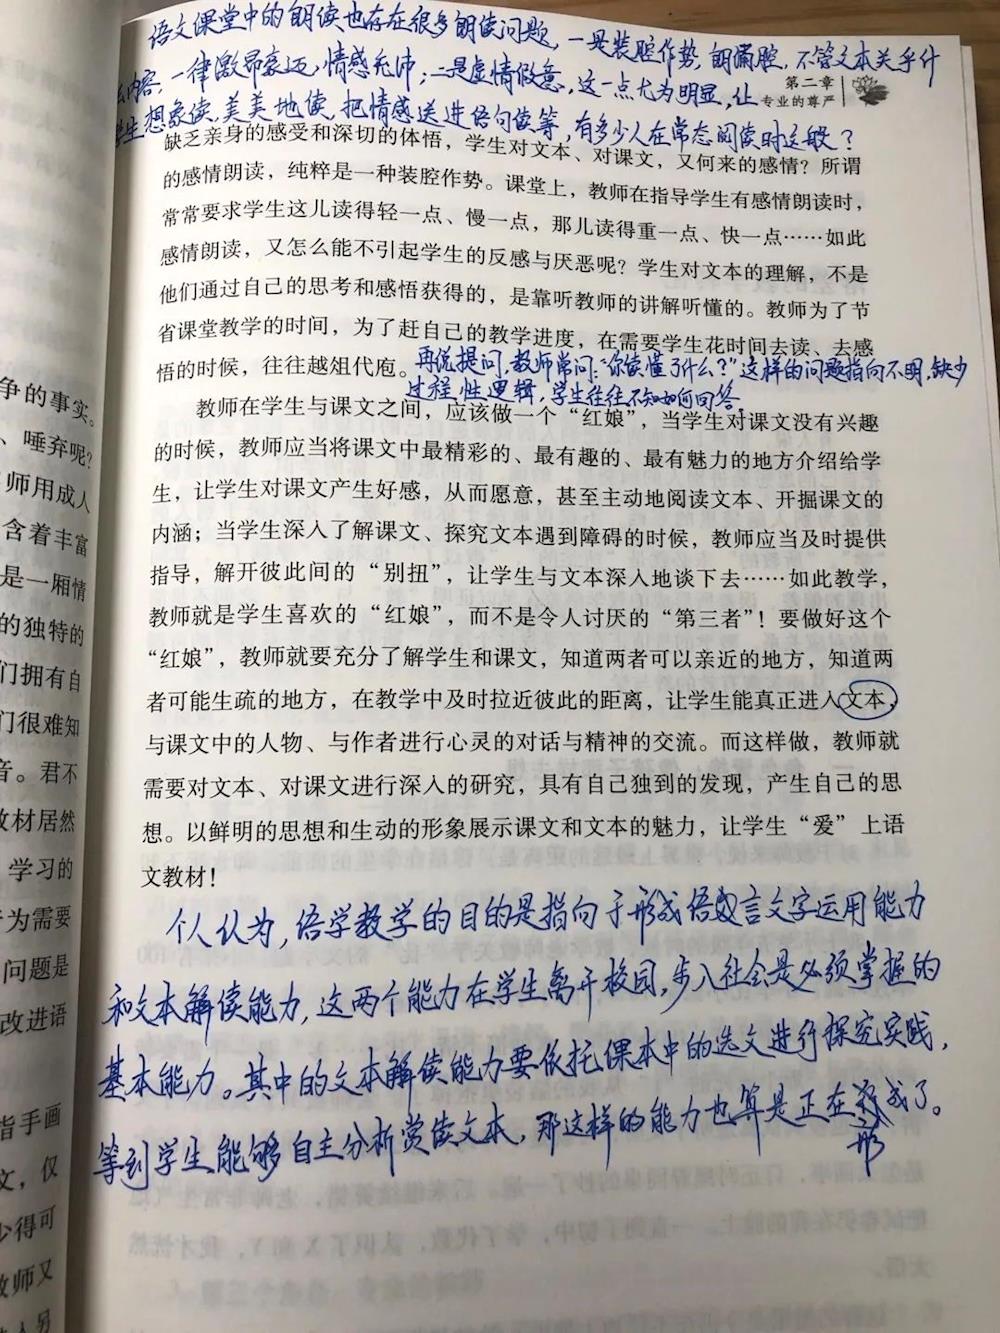 语文课堂中的朗读也存在很多朗读问题，一是装腔作势，朗诵腔，不管文本关乎什
么内容，一律激昂豪迈，情感充沛；二是虚情假意，这一点尤为明显，让
学生想象读，美美地读，把情感送进语句读等，有多少人在常态阅读时这般？
第二章
专业的尊严
缺乏亲身的感受和深切的体悟，学生对文本、对课文，又何来的感情？所谓
的感情朗读，纯粹是一种装腔作势。课堂上，教师在指导学生有感情朗读时，
常常要求学生这儿读得轻一点、慢一点，那儿读得重一点、快一点……如此
感情朗读，又怎么能不引起学生的反感与厌恶呢？学生对文本的理解，不是
他们通过自己的思考和感悟获得的，是靠听教师的讲解听懂的。教师为了节
省课堂教学的时间，为了赶自己的教学进度，在需要学生花时间去读、去感
悟的时候，往往越俎代庖。
再说提问，教师常问：“你读懂了什么？”这样的问题指向不明，缺少
过程性逻辑，学生往往不知如何回答。
教师在学生与课文之间，应该做一个“红娘”，当学生对课文没有兴趣
的时候，教师应当将课文中最精彩的、最有趣的、最有魅力的地方介绍给学
生，让学生对课文产生好感，从而愿意，甚至主动地阅读文本、开掘课文的
内涵；当学生深入了解课文、探究文本遇到障碍的时候，教师应当及时提供
指导，解开彼此间的“别扭”，让学生与文本深入地谈下去……如此教学，
教师就是学生喜欢的“红娘”，而不是令人讨厌的“第三者”！要做好这个
“红娘”，教师就要充分了解学生和课文，知道两者可以亲近的地方，知道两
者可能生疏的地方，在教学中及时拉近彼此的距离，让学生能真正进入文本，
与课文中的人物、与作者进行心灵的对话与精神的交流。而这样做，教师就
需要对文本、对课文进行深入的研究，具有自己独到的发现，产生自己的思
想。以鲜明的思想和生动的形象展示课文和文本的魅力，让学生“爱”上语
文教材！
个人认为，语学教学的目的是指向于形成语言文字运用能力
和文本解读能力，这两个能力在学生离开校园，步入社会是必须掌握的
基本能力。其中的文本解读能力要依托课本中的选文进行探究实践，
等到学生能够自主分析赏读文本，那这样的能力也算是正在形成了。
争的事实。
、唾弃呢？
师用成人
含着丰富
是一厢情
的独特的
们拥有自
们很难知
音。君不
教材居然
学习的
为需要
问题是
改进语
指手画
文，仅
少得可
教师又